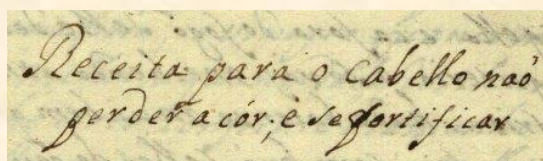 Receita para o Cabello naõ
perder a côr, e se fortificar